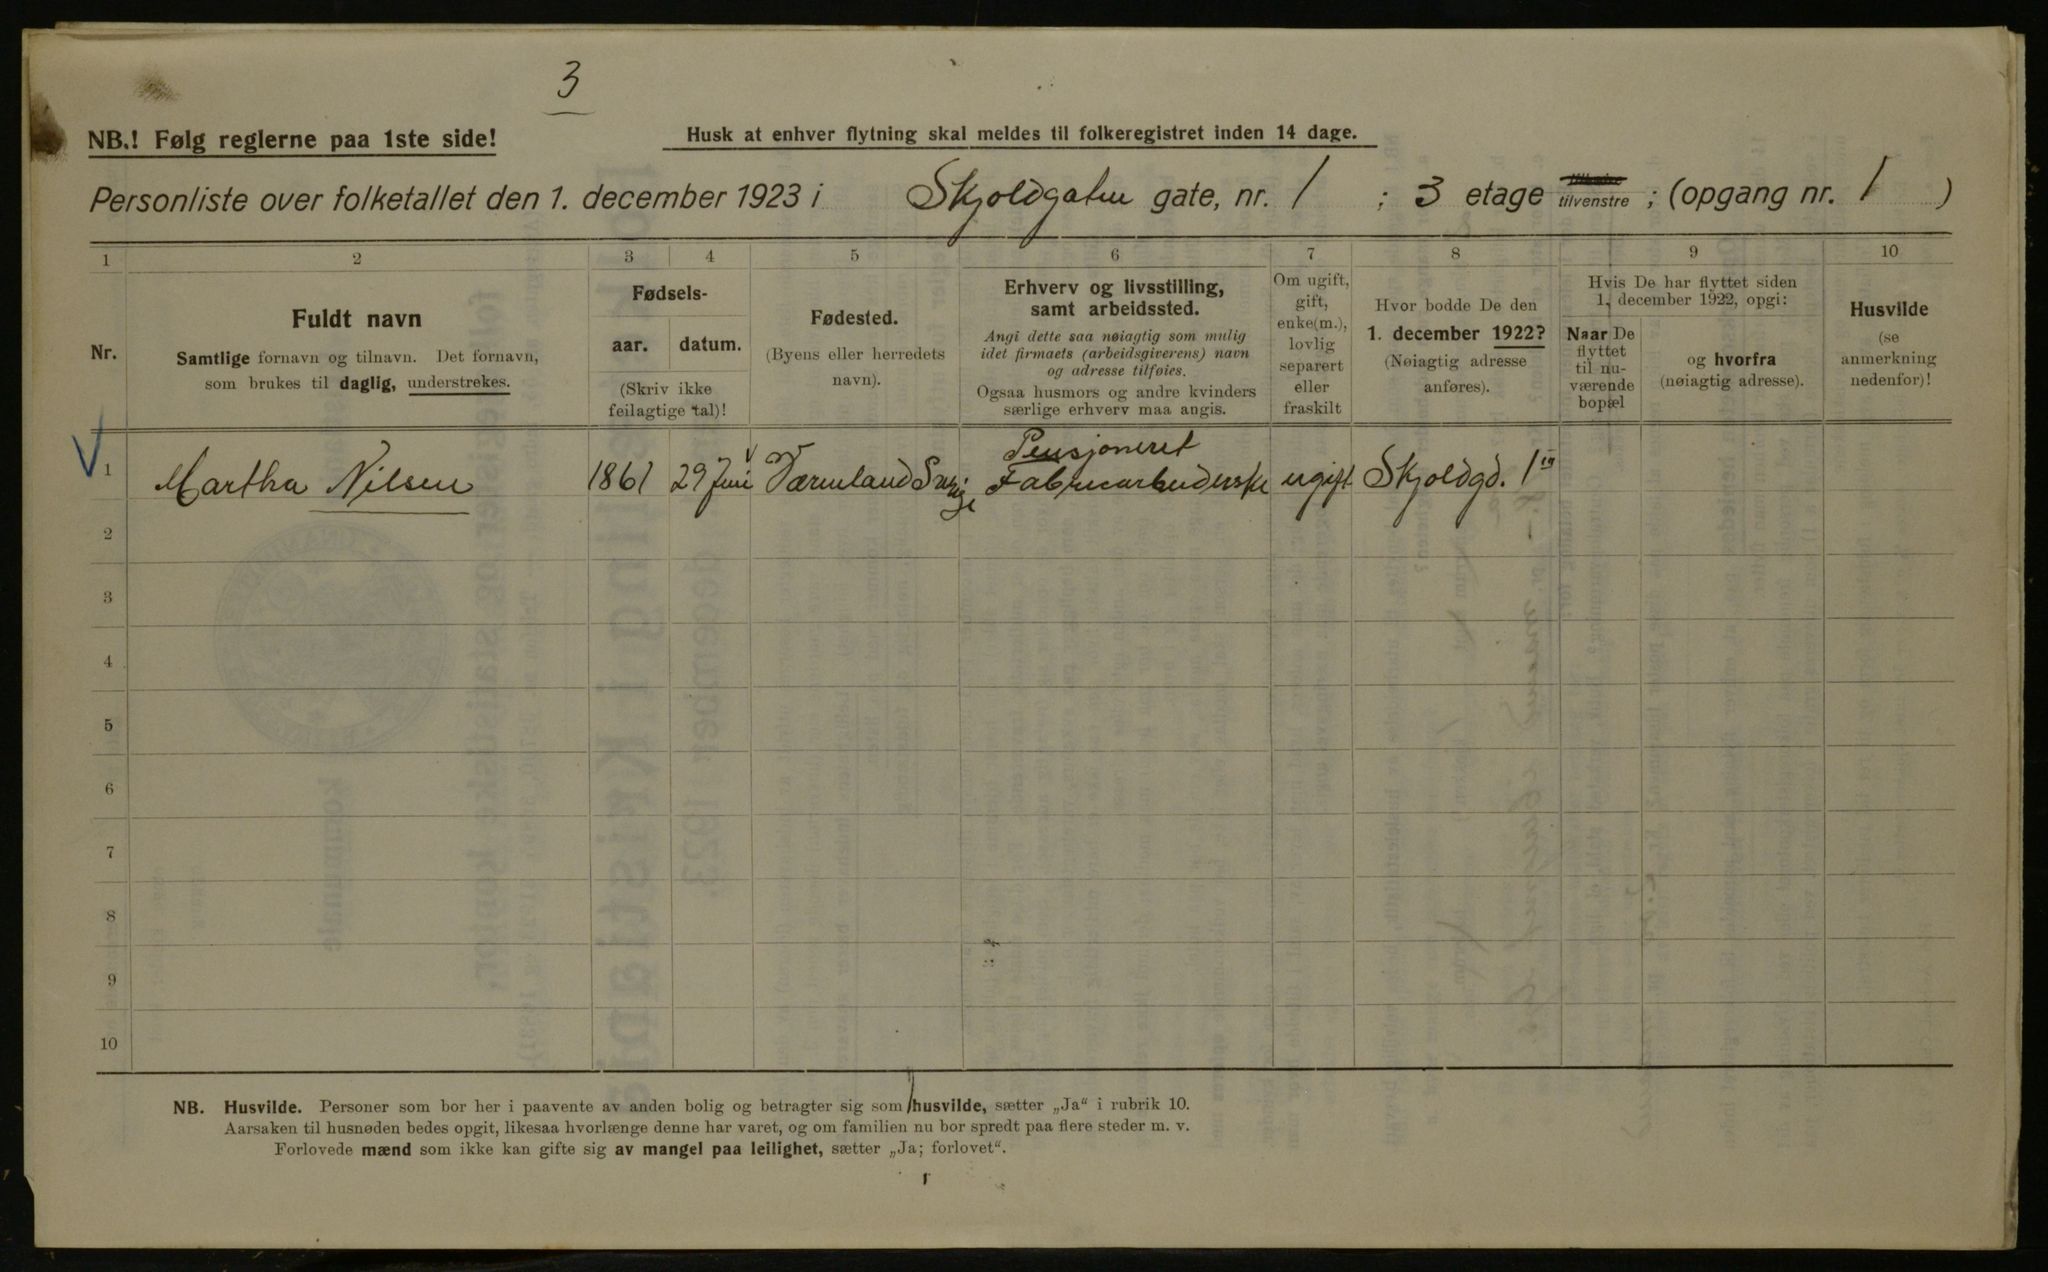 3
NB.! Følg reglerne paa 1ste side!
Husk at enhver flytning skal meldes til folkeregistret inden 14 dage.
Personliste over folketallet den 1. december 1923 i Skjoldgaten gate, nr. 1 ; 3 etage tilvenstre ; (opgang nr. 1 )
1 2 3 4 5 6 7 8 9 10
Nr.
Fuldt navn
Samtlige fornavn og tilnavn. Det fornavn,
som brukes til daglig, understrekes.
Fødsels-
aar. datum.
(Skriv ikke
feilagtige tal)!
Fødested.
(Byens eller herredets
navn).
Erhverv og livsstilling,
samt arbeidssted.
Angi dette saa nøiagtig som mulig
idet firmaets (arbeidsgiverens) navn
og adresse tilføies.
Ogsaa husmors og andre kvinders
særlige erhverv maa angis.
Om ugift,
gift,
enke(m.),
lovlig
separert
eller
fraskilt
Hvor bodde De den
1. december 1922?
(Nøiagtig adresse
anføres).
Hvis De har flyttet siden
1. december 1922, opgi:
Naar De
flyttet
til nu-
værende
bopæl
og hvorfra
(nøiagtig adresse).
Husvilde
(se
anmerkning
nedenfor)!
Pensjoneret
1 Martha Nilsen 1861 29 Juni Værmland Sverige Fabricarbeiderske ugift Skjoldgd. 1 III
2
3
4
5
6
7
8
9
10
NB. Husvilde. Personer som bor her i paavente av anden bolig og betragter sig som husvilde, sætter „Ja“ i rubrik 10.
Aarsaken til husnøden bedes opgit, likesaa hvorlænge denne har varet, og om familien nu bor spredt paa flere steder m. v.
Forlovede mænd som ikke kan gifte sig av mangel paa leilighet, sætter „Ja; forlovet“.